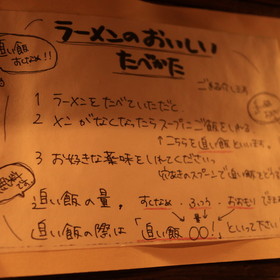 ラーメンのおいしい
たべかた
追い飯
少なめ!!
1 ラーメンをたべていただく
2 メンがなくなったらスープにご飯をいれる
↑こちらを追い飯といいます。
3 お好きな薬味をいれてください
穴あきのスプーンで追い飯を
追い飯の量、すくなめ・ふつう・おおもり
追い飯の際は「追い飯〇〇!」といって下さい